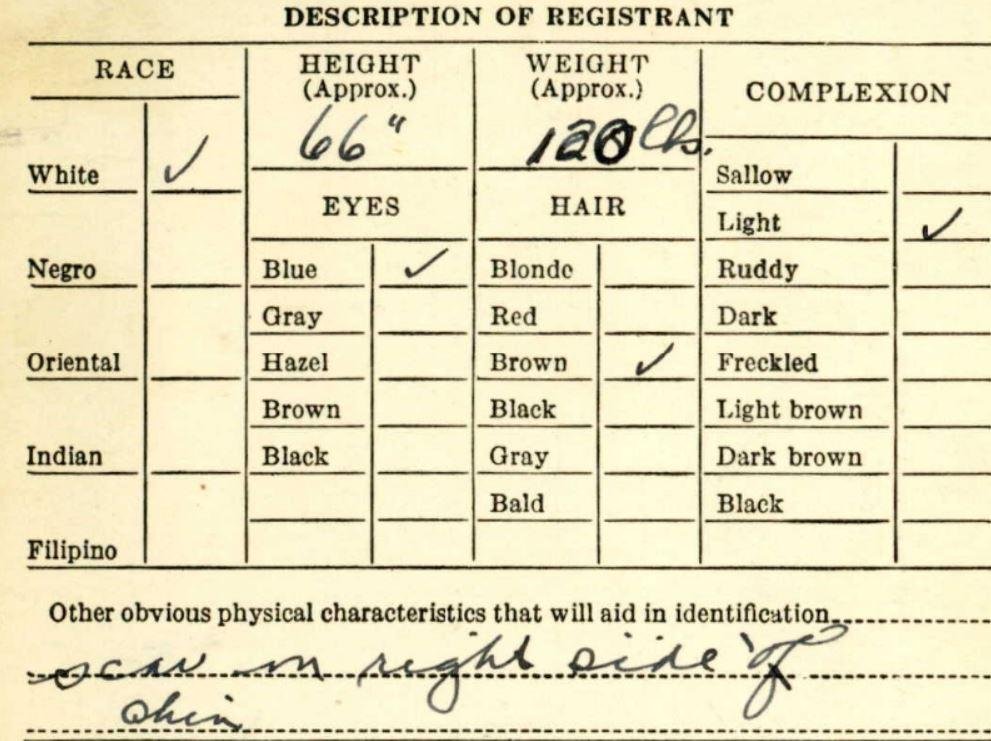 DESCRIPTION OF REGISTRANT
RACE HEIGHT WEIGHT COMPLEXION
(Approx.) (Approx.)
66" 120 lbs.
White ✓ Sallow
EYES HAIR
Light ✓
Negro Blue ✓ Blonde Ruddy
Gray Red Dark
Oriental Hazel Brown ✓ Freckled
Brown Black Light brown
Indian Black Gray Dark brown
Bald Black
Filipino
Other obvious physical characteristics that will aid in identification
scar on right side of
chin